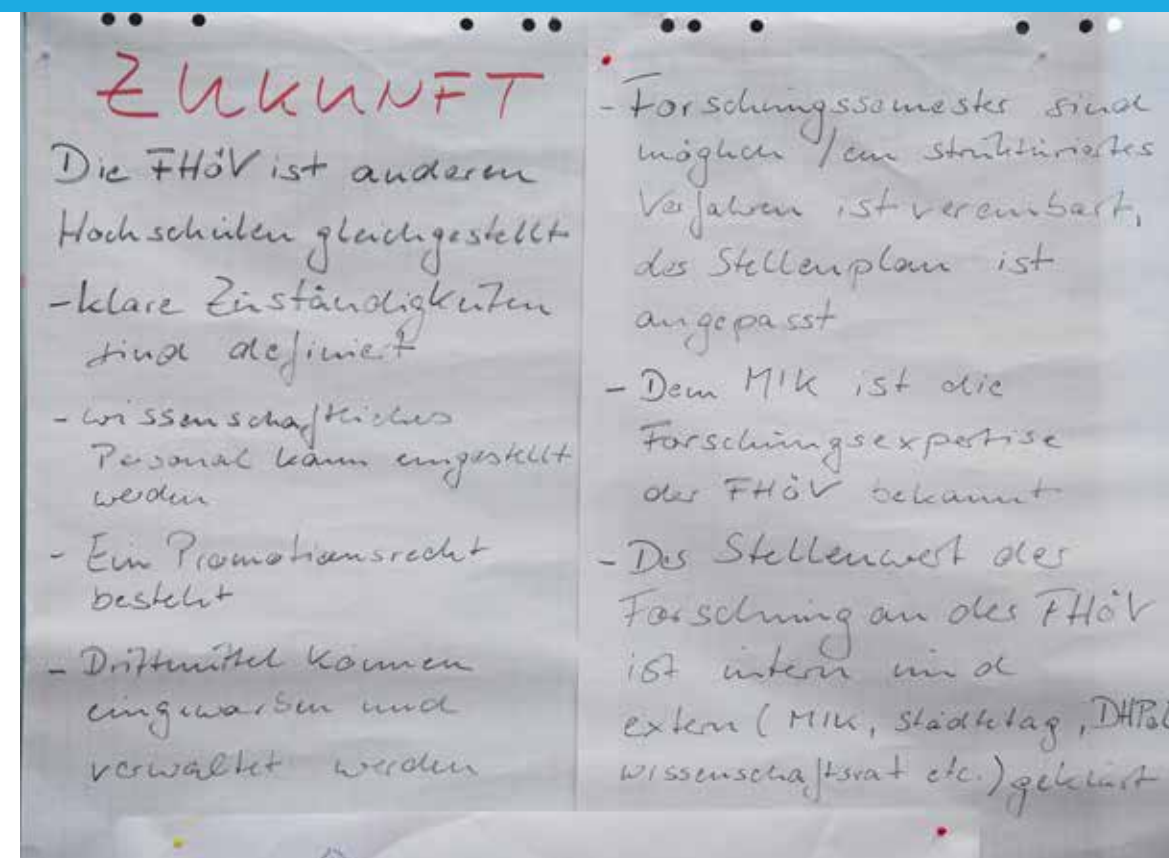 ZUKUNFT
Die FHöV ist anderen
Hochschulen gleichgestellt
- klare Zuständigkeiten
sind definiert
- wissenschaftliches
Personal kann eingestellt
werden
- Ein Promotionsrecht
besteht
- Drittmittel können
eingeworben und
verwaltet werden
- Forschungssemester sind
möglich / ein strukturiertes
Verfahren ist vereinbart,
der Stellenplan ist
angepasst
- Dem MIK ist die
Forschungsexpertise
der FHöV bekannt
- Der Stellenwert der
Forschung an der FHöV
ist intern und
extern (MIK, Städtetag, DHPol
Wissenschaftsrat etc.) geklärt